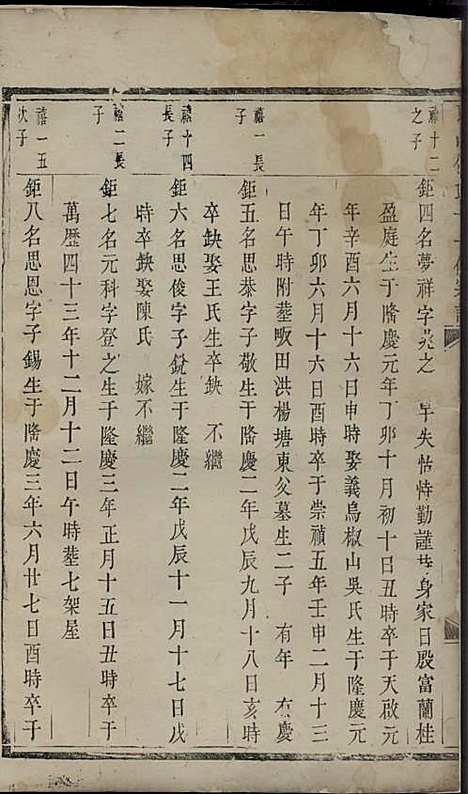 禧十二
之子
鉅四名夢祥字兆之 早失怙恃勤謹 身家日殷富蘭桂
盈庭生于隆慶元年丁卯十月初十日丑時卒于天啟元
年辛酉六月十六日申時娶義烏椒山吳氏生于隆慶元
年丁卯六月十六日酉時卒于崇禎五年壬申二月十三
日午時附塟畈田洪楊塘東父墓生二子 有年 有慶
禧一長
子
鉅五名思恭字子敬生于隆慶二年戊辰九月十八日亥時
卒缺娶王氏生卒缺 不繼
禧十四
長子
鉅六名思俊字子銳生于隆慶二年戊辰十一月十七日戌
時卒缺娶陳氏 嫁不繼
禧二長
子
鉅七名元科字登之生于隆慶三年正月十五日丑時卒于
萬歷四十三年十二月十二日午時塟七架屋
禧一五
次子
鉅八名思恩字子錫生于隆慶三年六月廿七日酉時卒于